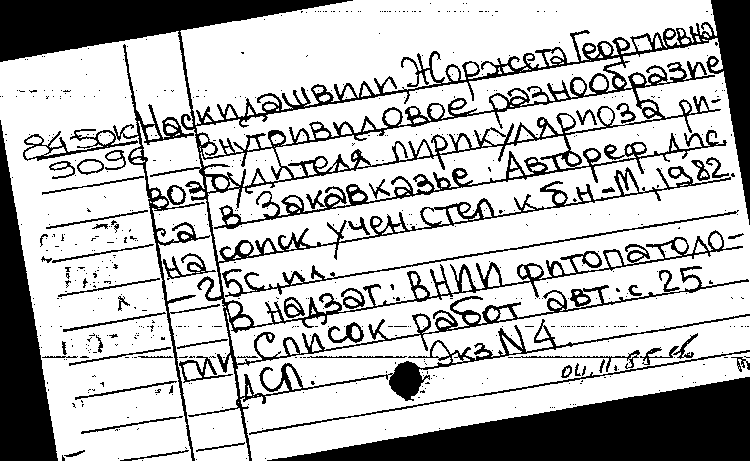 Наскидашвили, Жоржета Георгиевна
84-50к
9096
Внутривидовое разнообразие
возбудителя пирикуляриоза ри-
са в Закавказье: Автореф. дис.
на соиск. учен. степ. к.б.н.-М.,1982.
-25с., ил.
В надзаг.: ВНИИ фитопатоло-
гии. Список работ авт.: с.25.
ДСП. Экз.N4.
04.11.85